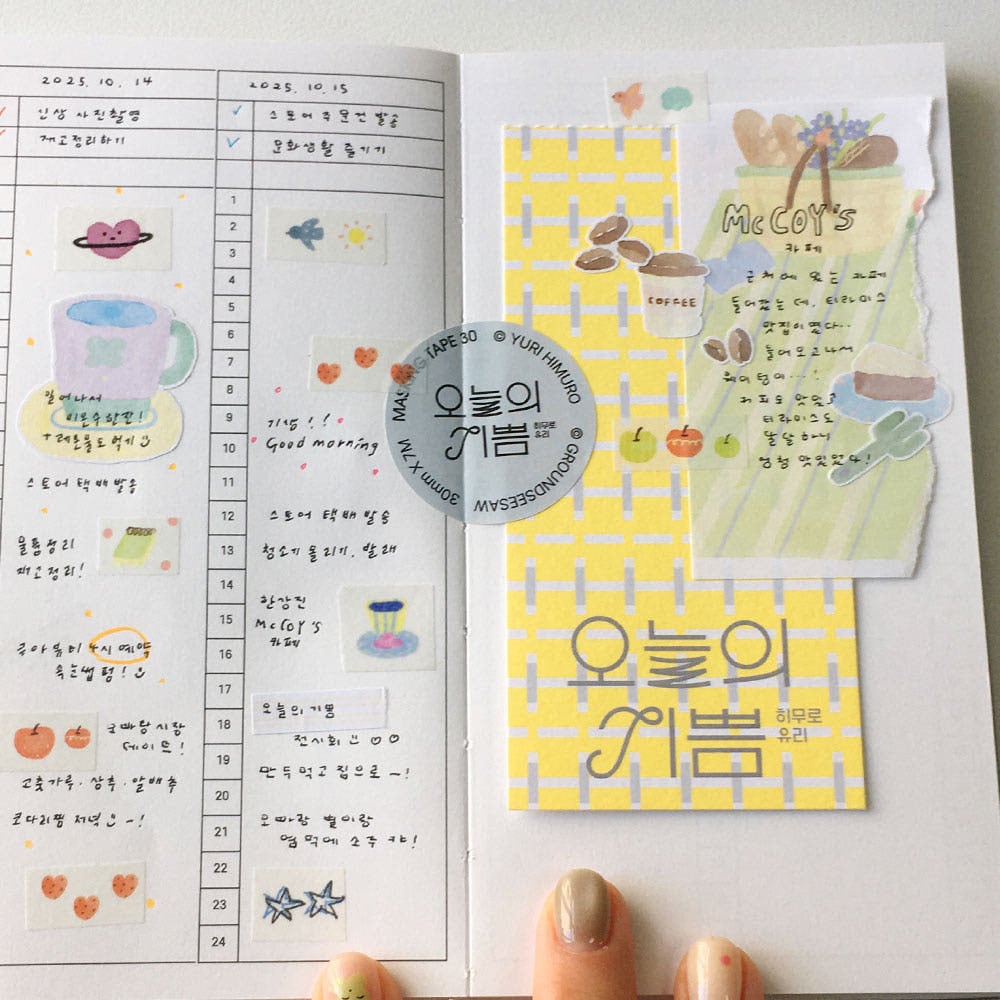 2025. 10. 14
신상 사진촬영
재고정리하기
일어나서
미온수한잔!
+레몬물도먹기
스토어 택배발송
물품정리
재고정리!
4시 예약
속눈썹펌!
시장
데이트!
고춧가루. 상추. 알배추
코다리찜 저녁 ~!
2025. 10. 15
스토어 주문건 발송
문화생활 즐기기
1
2
3
4
5
6
7
8
9
10
11
12
13
14
15
16
17
18
19
20
21
22
23
24
기상!!
Good morning
스토어 택배 발송
청소기 돌리기, 빨래
한강진
McCoy's
카페
오늘의 기쁨
전시회
만두먹고 집으로 ~!
오빠랑 별이랑
엽떡에 소주 캬!
MASKING TAPE 30 © YURI HIMURO
© GROUNDSEESAW
30mm X 7M
오늘의
기쁨
히무로
유리
McCOY's
카페
근처에 있는 카페
들어갔는데, 티라미스
맛집이였다..
들어오고나서
웨이팅이...!
커피도 맛있고
티라미스도
달달하니
엄청 맛있었다!
COFFEE
오늘의
기쁨
히무로
유리